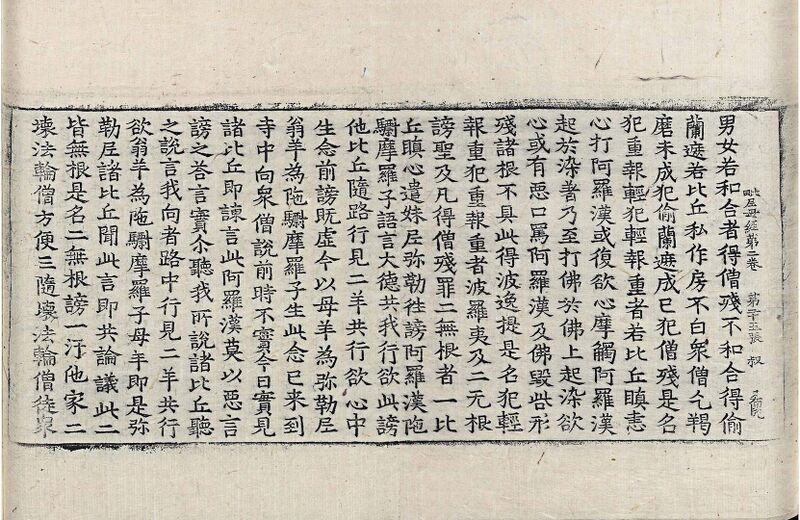 毗尼母經第二卷 第二十五張 叔
男女若和合者得僧殘不和合得偷
蘭遮若比丘私作房不白衆僧乞羯
磨未成犯偷蘭遮成已犯僧殘是名
犯重報輕犯輕報重者若比丘瞋恚
心打阿羅漢或復欲心摩觸阿羅漢
起於染著乃至打佛於佛上起染欲
心或有惡口罵阿羅漢及佛毀呰形
殘諸根不具此得波逸提是名犯輕
報重犯重報重者波羅夷及二无根
謗聖及凡得僧殘罪二無根者一比
丘瞋心遣妹尼弥勒往謗阿羅漢陁
驃摩羅子語言大德共我行欲此謗
他比丘隨路行見二羊共行欲心中
生念前謗既虛今以母羊為弥勒尼
翁羊為陁驃摩羅子生此念已来到
寺中向衆僧說前時不實今日實見
諸比丘即諫言此阿羅漢莫以惡言
謗之答言實尒聽我所說諸比丘聽
之說言我向者路中行見二羊共行
欲翁羊為陁驃摩羅子母羊即是弥
勒尼諸比丘聞此言即共論議此二
皆無根是名二無根謗一汙他家二
壞法輪僧方便三隨壞法輪僧徒衆